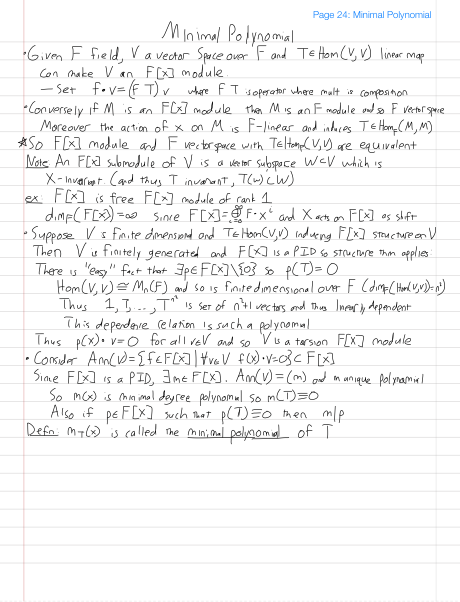 Page 24: Minimal Polynomial
Minimal Polynomial
• Given F field, V a vector space over F and T∈Hom(V,V) linear map
can make V an F[x] module.
– Set f•v=(f T) v where f T is operator where mult is composition
• Conversely if M is an F[x] module then M is an F module and so F vector space
Moreover the action of x on M is F-linear and induces T∈Hom_F(M,M)
* So F[x] module and F vector space with T∈Hom_F(V,V) are equivalent
Note An F[x] submodule of V is a vector subspace W⊂V which is
X-invariant. (and thus T invariant, T(W)⊂W)
ex F[x] is free F[x] module of rank 1
dim_F(F[x])=∞ since F[x]=⊕F·x^i and X acts on F[x] as shift
• Suppose V is finite dimensional and T∈Hom(V,V) inducing F[x] structure on V
Then V is finitely generated and F[x] is a PID so structure thm applies
There is "easy" fact that ∃p∈F[x]\{0} so p(T)=0
Hom(V,V)≅M_n(F) and so is finite dimensional over F (dim_F(Hom(V,V))=n²)
Thus 1,T,...,T^n² is set of n²+1 vectors and thus linearly dependent
This dependence relation is such a polynomial
Thus p(x)·v=0 for all v∈V and so V is a torsion F[x] module
• Consider Ann(V)={f∈F[x] | ∀v∈V f(x)·v=0}⊂F[x]
Since F[x] is a PID, ∃m∈F[x]. Ann(V)=(m) and m unique polynomial
So m(x) is minimal degree polynomial so m(T)≡0
Also if p∈F[x] such that p(T)≡0 then m|p
Defn: m_T(x) is called the minimal polynomial of T